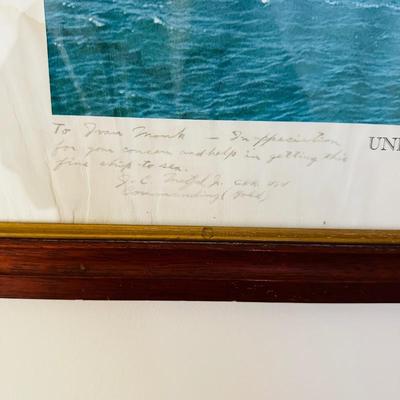 To Ivan Monk — In appreciation
for your concern and help in getting this
fine ship to sea.
Jr. CDR. USN
Commanding (Gold)
UNI